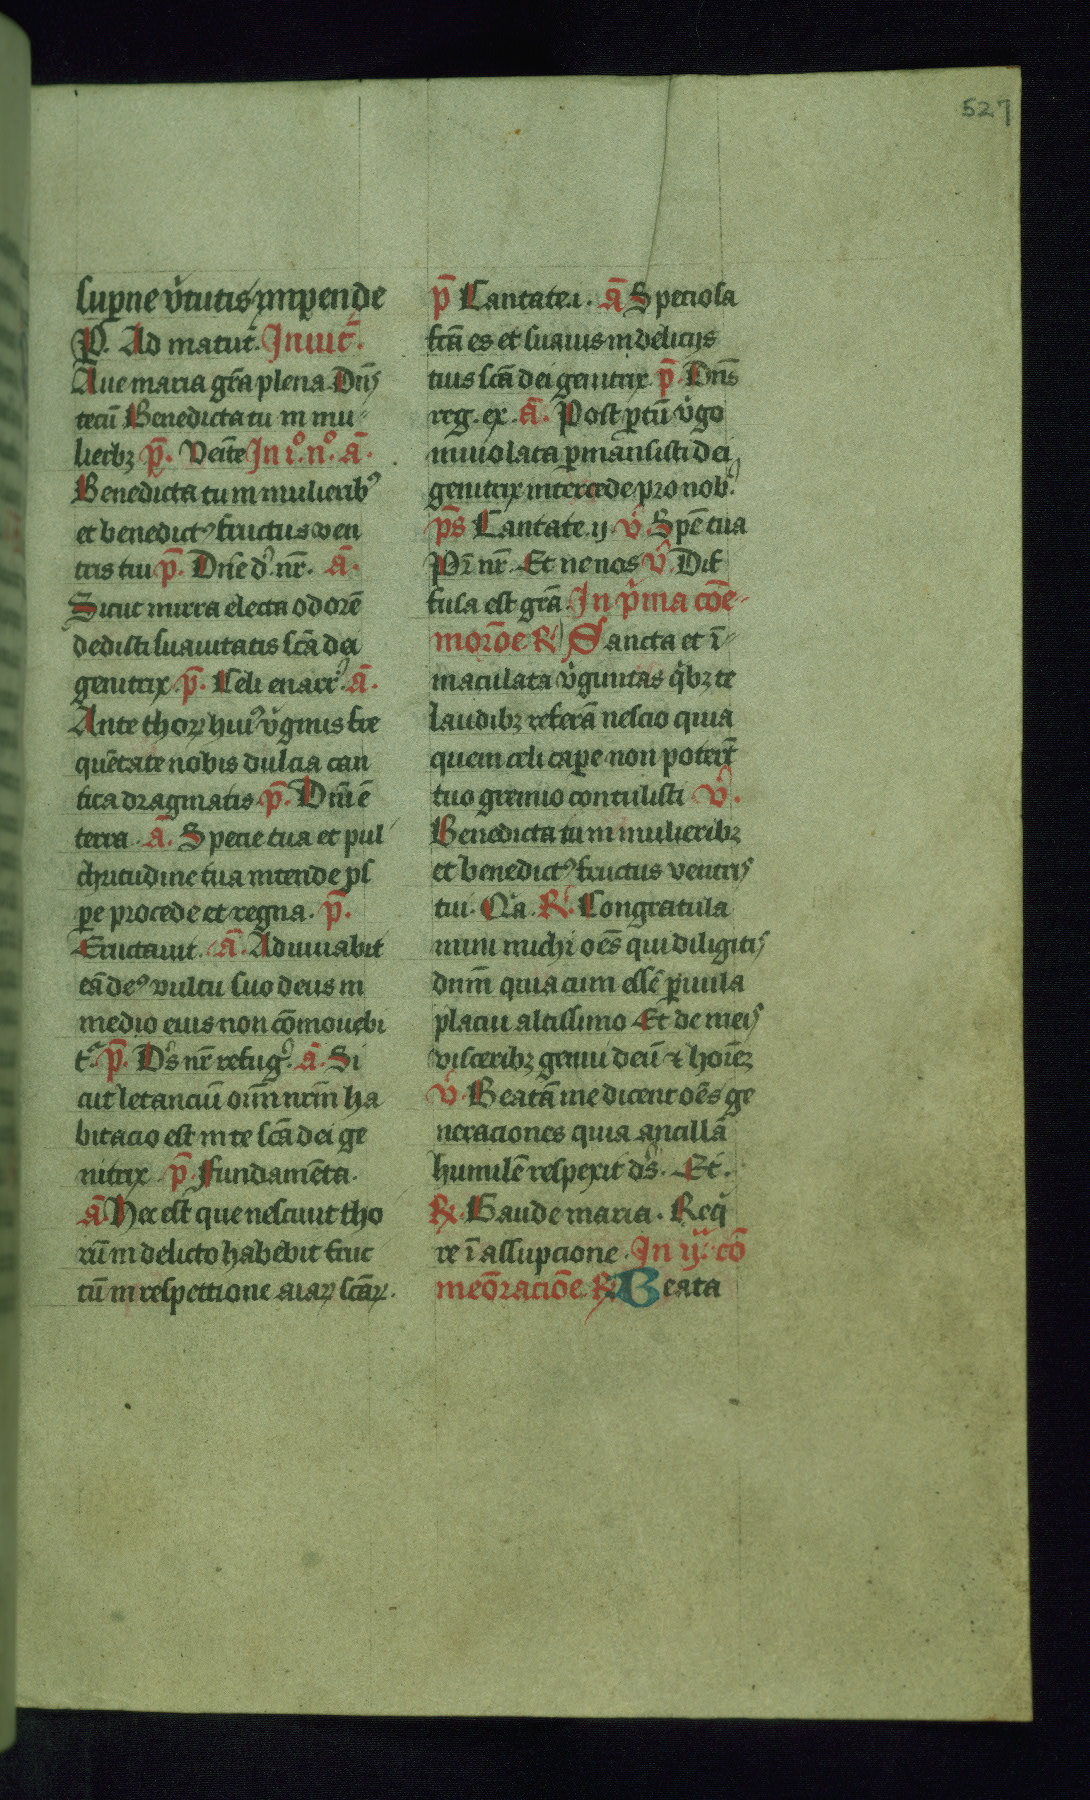 527
sup̱ne v̾tutis ympende
P. Ad matut̄. Inuit̄.
Aue maria gr̄a plena Dn̄s
tecū Benedicta tu in mu-
lierbꝫ p̄. Venite In i.º n.º ā.
Benedicta tu in mulierib⁹
et benedict⁹ fructus ven
tris tui p̄. Dn̄e d̾. nr̄. ā.
Sicut mirra electa odorē
dedisti suauitatis sc̄a dei
genitrix p̄. Celi enarr̾. ā.
Ante thorꝝ hui⁹ v̾ginis fre
quētate nobis dulcia can
tica dragmatis p̄. Dn̄i ē
terra. ā. Specie tua et pul
chritudine tua intende ps
ꝑe procede et regna. p̄.
Eructauit. ā. Adiuuabit
eā de⁹ vultu suo deus in
medio eius non cōmouebi
t᷑. p̄. D̾s nr̄ refug̾. ā. Si
cut letanciū oīm nr̄m ha
bitacio est in te sc̄a dei ge
nitrix p̄ Fundamēta.
ā Hec est que nesciuit tho
rū in delicto habebit fruc
tū in respettione aiaꝝ sc̄aꝝ.
p̄ Cantate.i. ā Speciosa
fc̄a es et suauis in delicijs
tuis sc̄a dei genitrix p̄. Dn̄s
reg. ex. ā. Post ꝑtū v̾go
inuiolata ꝑmansisti dei
genitrix intercede pro nob̾.
p̄s Cantate.ij. v̾. Spē tua
Pr̄ nr̄. Et ne nos v̾. Dif
fusa est gr̄a. In p̾ma cōe-
morōe ℟ Sancta et ī-
maculata v̾ginitas q̾bꝫ te
laudibꝫ referā nescio quia
quem celi caꝑe non poterāt
tuo gremio contulisti v̾.
Benedicta tu in mulieribꝫ
et benedict⁹ fructus ventris
tui. Q̾a. ℟. Congratula
mini michi oēs qui diligitis
dn̄m quia cum essē ꝑuula
placui altissimo Et de meis
visceribꝫ genui deū ⁊ hoīeꝫ
v̾. Beatā me dicent oēs ge
neraciones quia ancillā
humilē respexit d̾s. Et.
℟. Gaude maria. Req̾
re ī assupcione. In ij.ª cō
meōraciōe ℟ Beata